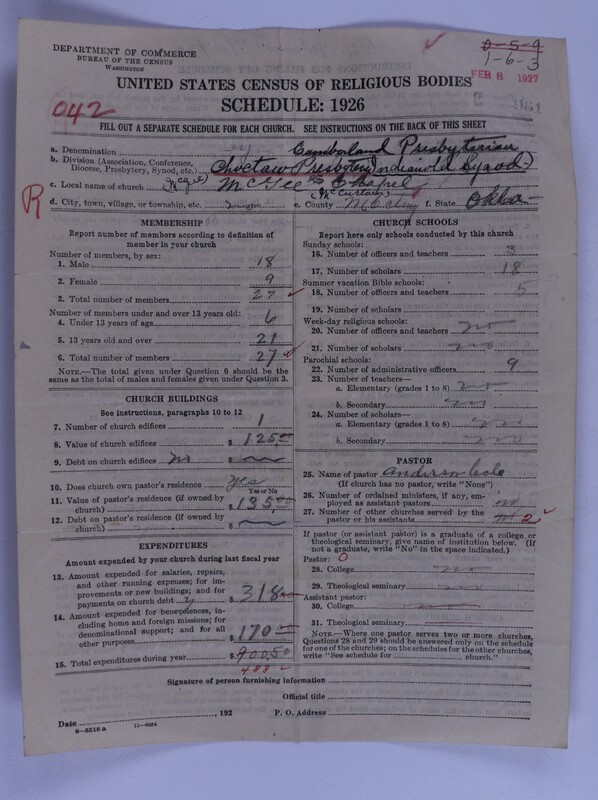 DEPARTMENT OF COMMERCE
BUREAU OF THE CENSUS
WASHINGTON
0-5-9
1-6-3
FEB 8 1927
961
UNITED STATES CENSUS OF RELIGIOUS BODIES
SCHEDULE: 1926
042
FILL OUT A SEPARATE SCHEDULE FOR EACH CHURCH. SEE INSTRUCTIONS ON THE BACK OF THIS SHEET
a. Denomination Cumberland Presbyterian
b. Division (Association, Conference, Diocese, Presbytery, Synod, etc.) Choctaw Presbytery Indianola Synod
c. Local name of church McGee Chapel
R
d. City, town, village, or township, etc. e. County (McCurtain) f. State Okla
MEMBERSHIP
Report number of members according to definition of member in your church
Number of members, by sex:
1. Male 18
2. Female 9
3. Total number of members 27
Number of members under and over 13 years old:
4. Under 13 years of age 6
5. 13 years old and over 21
6. Total number of members 27
NOTE.—The total given under Question 6 should be the same as the total of males and females given under Question 3.
CHURCH BUILDINGS
See instructions, paragraphs 10 to 12
7. Number of church edifices 1
8. Value of church edifices $ 125.00
9. Debt on church edifices $
10. Does church own pastor's residence? Yes
Yes or No
11. Value of pastor's residence (if owned by church) $ 135.00
12. Debt on pastor's residence (if owned by church) $
EXPENDITURES
Amount expended by your church during last fiscal year
13. Amount expended for salaries, repairs, and other running expenses; for improvements or new buildings; and for payments on church debt $ 318
14. Amount expended for benevolences, including home and foreign missions; for denominational support; and for all other purposes $ 170.00
15. Total expenditures during year $
488
CHURCH SCHOOLS
Report here only schools conducted by this church
Sunday schools:
16. Number of officers and teachers 3
17. Number of scholars 18
Summer vacation Bible schools:
18. Number of officers and teachers 5
19. Number of scholars
Week-day religious schools:
20. Number of officers and teachers no
21. Number of scholars no
Parochial schools:
22. Number of administrative officers 9
23. Number of teachers—
a. Elementary (grades 1 to 8) no
b. Secondary no
24. Number of scholars—
a. Elementary (grades 1 to 8) no
b. Secondary no
PASTOR
25. Name of pastor Anderson Cole
(If church has no pastor, write "None")
26. Number of ordained ministers, if any, employed as assistant pastors no
27. Number of other churches served by the pastor or his assistants 2
If pastor (or assistant pastor) is a graduate of a college or theological seminary, give name of institution below. (If not a graduate, write "No" in the space indicated.)
Pastor: 0
28. College no
29. Theological seminary
Assistant pastor:
30. College
31. Theological seminary
NOTE.—Where one pastor serves two or more churches, Questions 28 and 29 should be answered only on the schedule for one of the churches; on the schedules for the other churches, write "See schedule for church."
Signature of person furnishing information
Official title
Date , 192 P. O. Address
8-5518a 11-9024